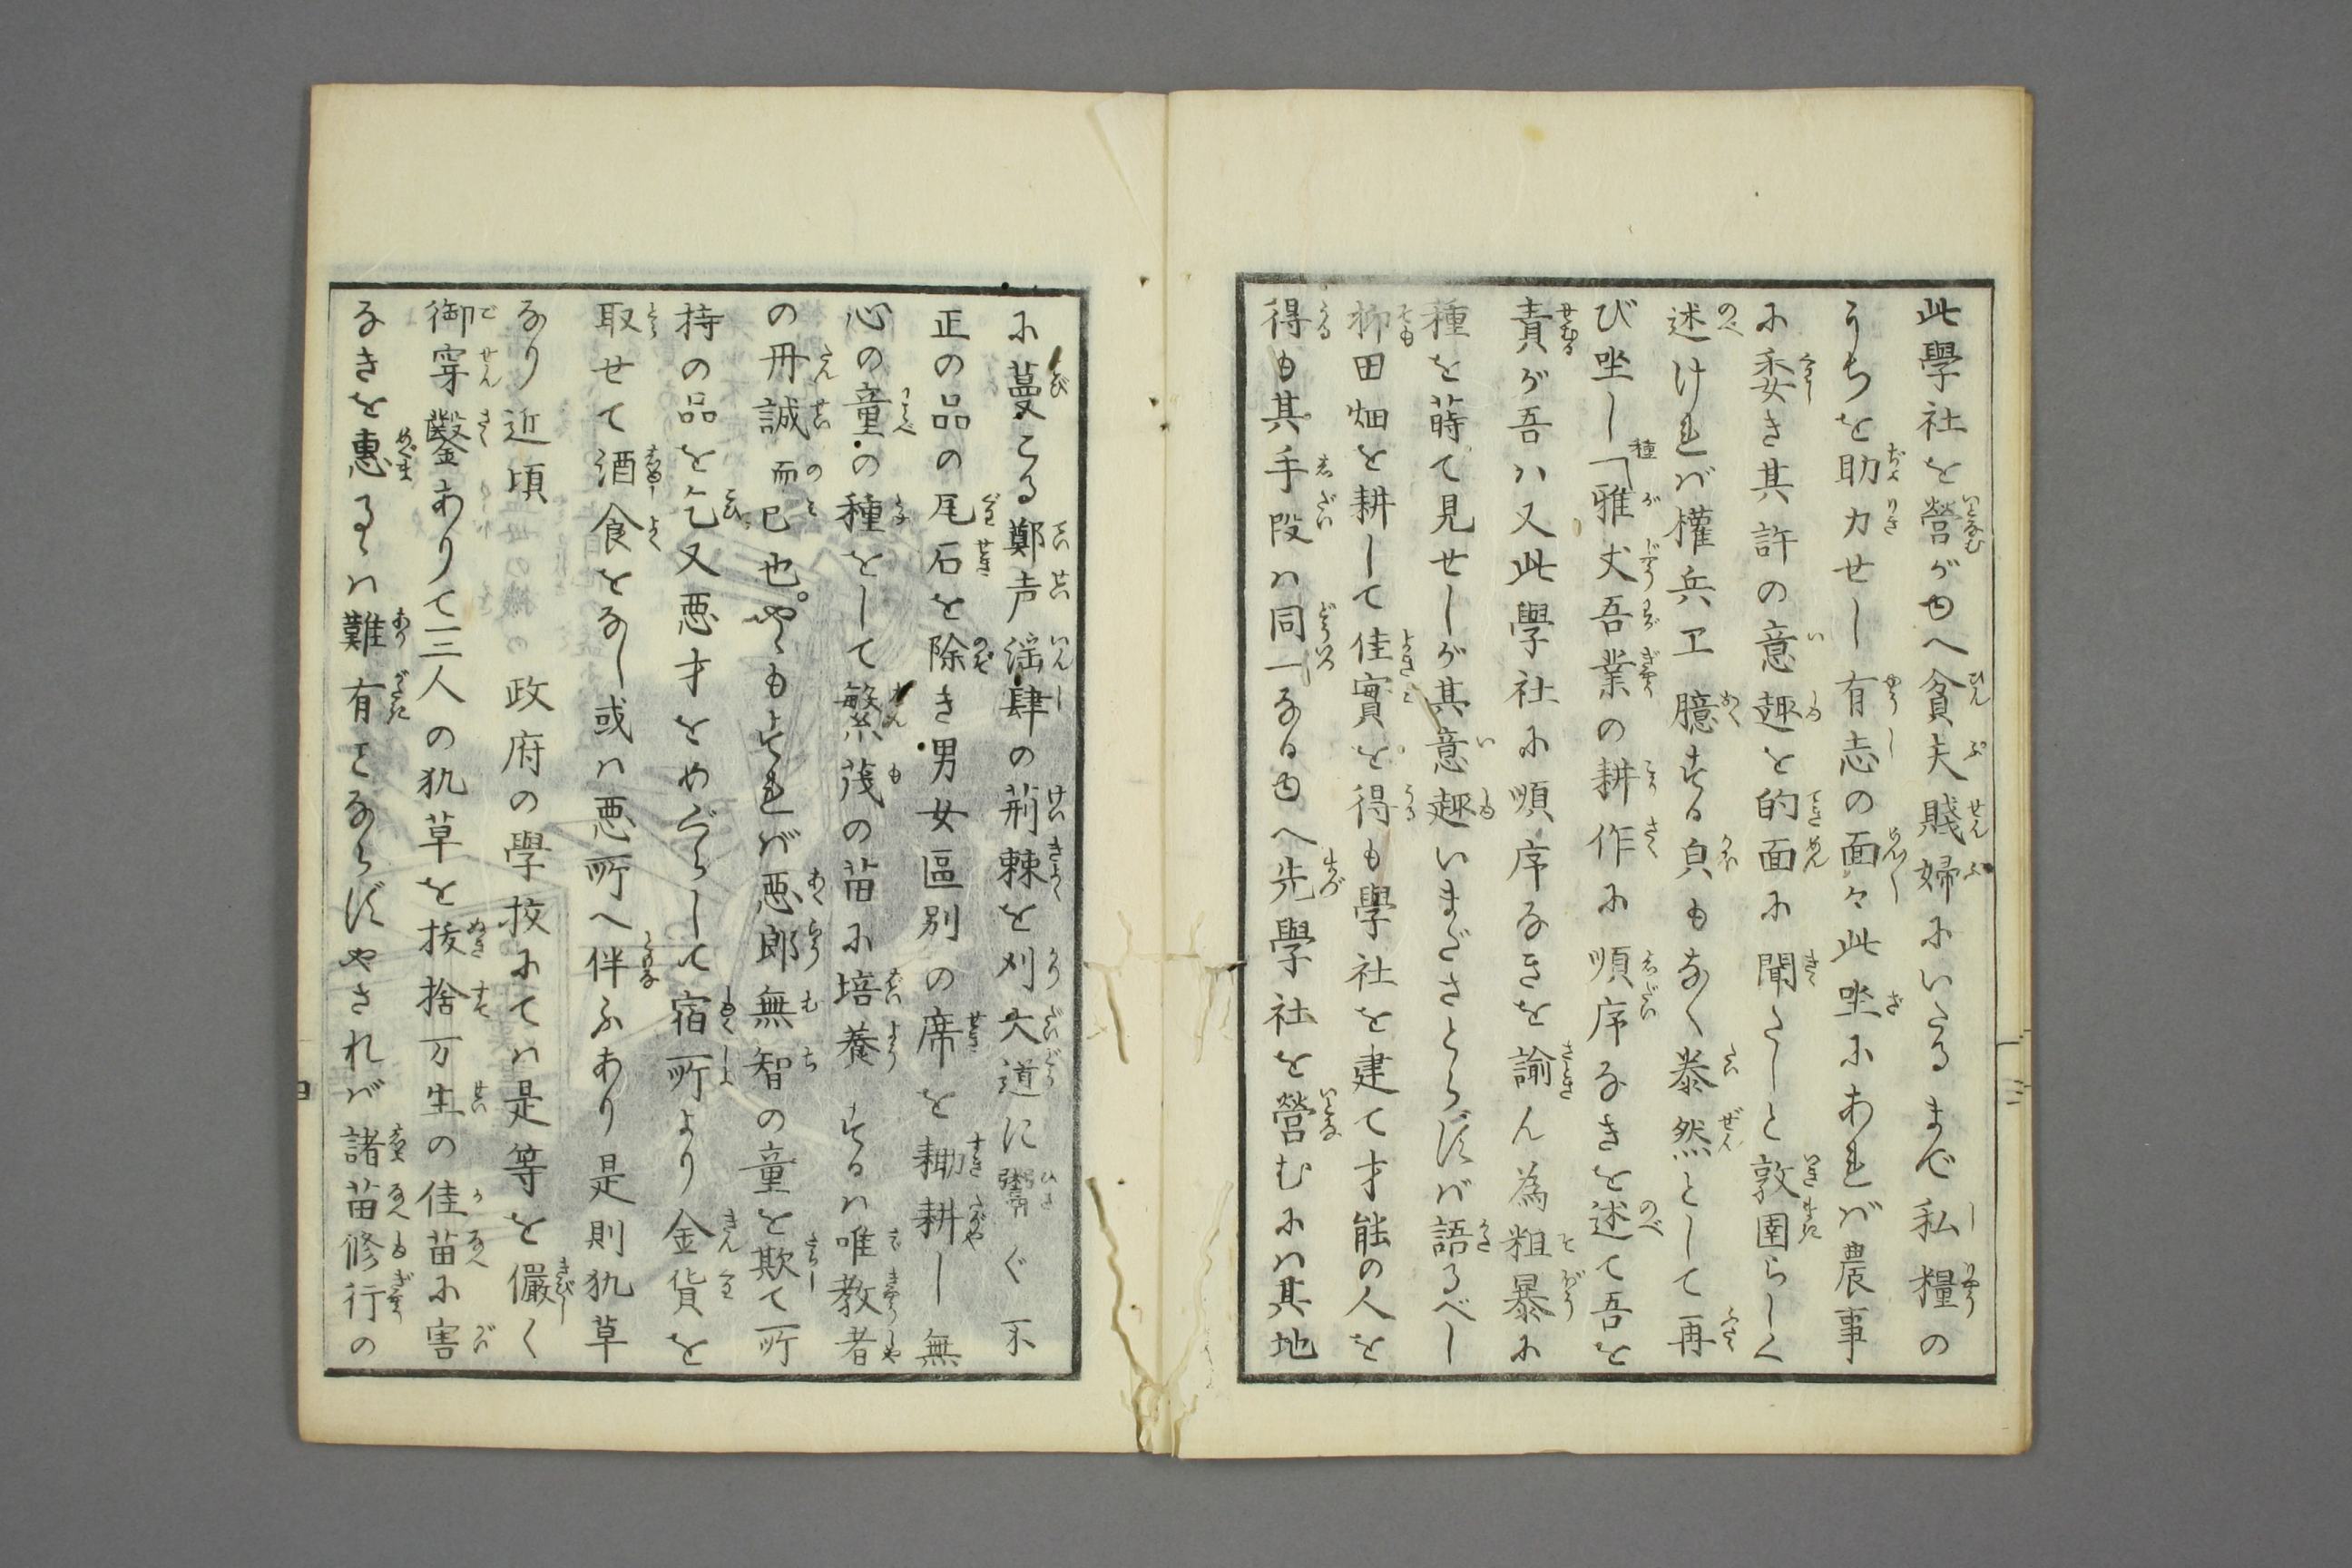 此學社を營がゆへ貧夫賤婦にいたるまで私糧の
うちを助力せし有志の面々此坐にあれば農事
に委き其許の意趣を的面に聞たしと敦圉らしく
述ければ權兵ヱ臆する色もなく泰然として再
び坐し「種雅丈吾業の耕作に順序なきを述て吾を
責るが吾ハ又此學社に順序なきを諭ん為粗暴に
種を蒔て見せしが其意趣いまださとらずば語るべし
抑田畑を耕して佳實を得るも學社を建て才能の人を
得も其手段ハ同一なるゆへ先學社を營むにハ其地
に蔓こる鄭声淫肆の荊棘を刈大道に鬻ぐ不
正の品の尾石を除き男女區別の席を耡耕し無
心の童の種をして繁茂の苗に培養するハ唯教者
の丹誠而已也。やゝもすれば悪郎無智の童を欺て所
持の品を乞又悪才をめぐらして宿所より金貨を
取せて酒食をなし或ハ悪所へ伴ふあり是則犰草
なり近頃政府の學校にてハ是等を儼く
御穿鑿ありて三人の犰草を抜捨万生の佳苗に害
なきを惠るゝハ難有ことならずやされば諸苗修行の